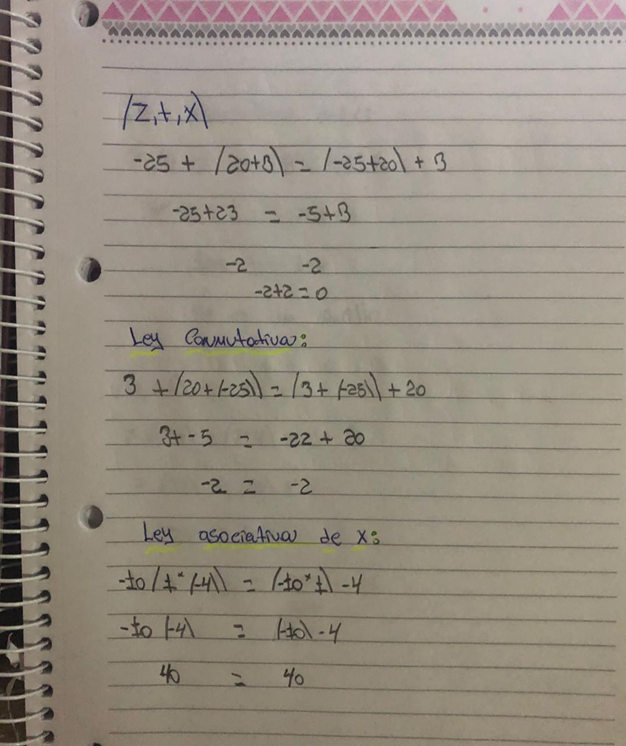 (Z,+,x)
-25 + (20+3) = (-25+20) + 3
-25+23 = -5+3
-2 -2
-2+2=0
Ley Conmutativa:
3 + (20+(-25)) = (3+(-25)) + 20
3+-5 = -22 + 20
-2 = -2
Ley asociativa de x:
-10 (1*(-4)) = (-10*1) -4
-10 (-4) = (-10) -4
40 = 40